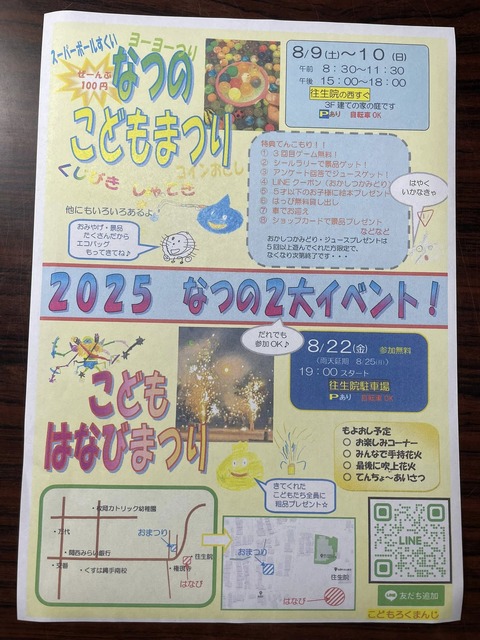 スーパーボールすくい
ヨーヨーつり
ぜーんぶ
100円
なつの
こどもまつり
コインおとし
くじびき しゃてき
他にもいろいろあるよ
おみやげ・景品
たくさんだから
エコバッグ
もってきてね♪
8/9(土)～10(日)
午前 8:30～11:30
午後 15:00～18:00
往生院の西すぐ
3F建ての家の庭です
Pあり 自転車OK
特典てんこもり!!
① 3回目ゲーム無料!
② シールラリーで景品ゲット!
③ アンケート回答でジュースゲット!
④ LINEクーポン(おかしつかみどり)
⑤ 5才以下のお子様に絵本プレゼント
⑥ はっぴ無料貸し出し
⑦ 車でお迎え
⑧ ショップカードで景品プレゼント
などなど
おかしつかみどり・ジュースプレゼントは
5回以上遊んでくれた方限定で、
なくなり次第終了です・・・
はやく
いかなきゃ
2025 なつの2大イベント!
だれでも
参加OK♪
こども
はなびまつり
8/22(金) 参加無料
(雨天延期 8/25(月))
19:00スタート
往生院駐車場
Pあり 自転車OK
もよおし予定
○ お楽しみコーナー
○ みんなで手持花火
○ 最後に吹上花火
○ てんちょ～あいさつ
きてくれた
こどもたち全員に
粗品プレゼント☆
・枚岡カトリック幼稚園
・万代
おまつり
・関西みらい銀行
・交番
・くすは縄手南校
・権現
往生院
はなび
おまつり
往生院
はなび
LINE
LINE 友だち追加
こどもろくまんじ